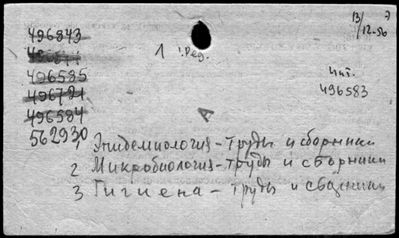 13/12-50
496843
1 !Ред.
496535
Чит.
496583
496721
496584
562930
1 Эпидемиология - труды и сборники
2 Микробиология - труды и сборники
3 Гигиена - труды и сборники